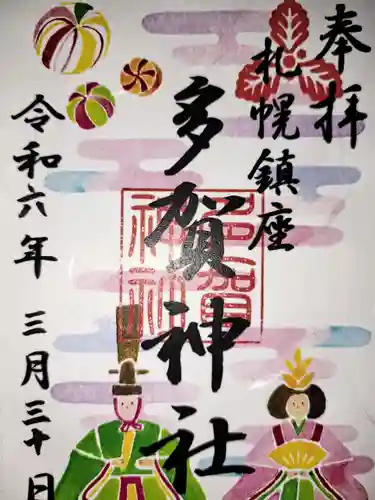 奉拝
札幌鎮座
多賀神社
多賀神社
令和六年 三月三十日